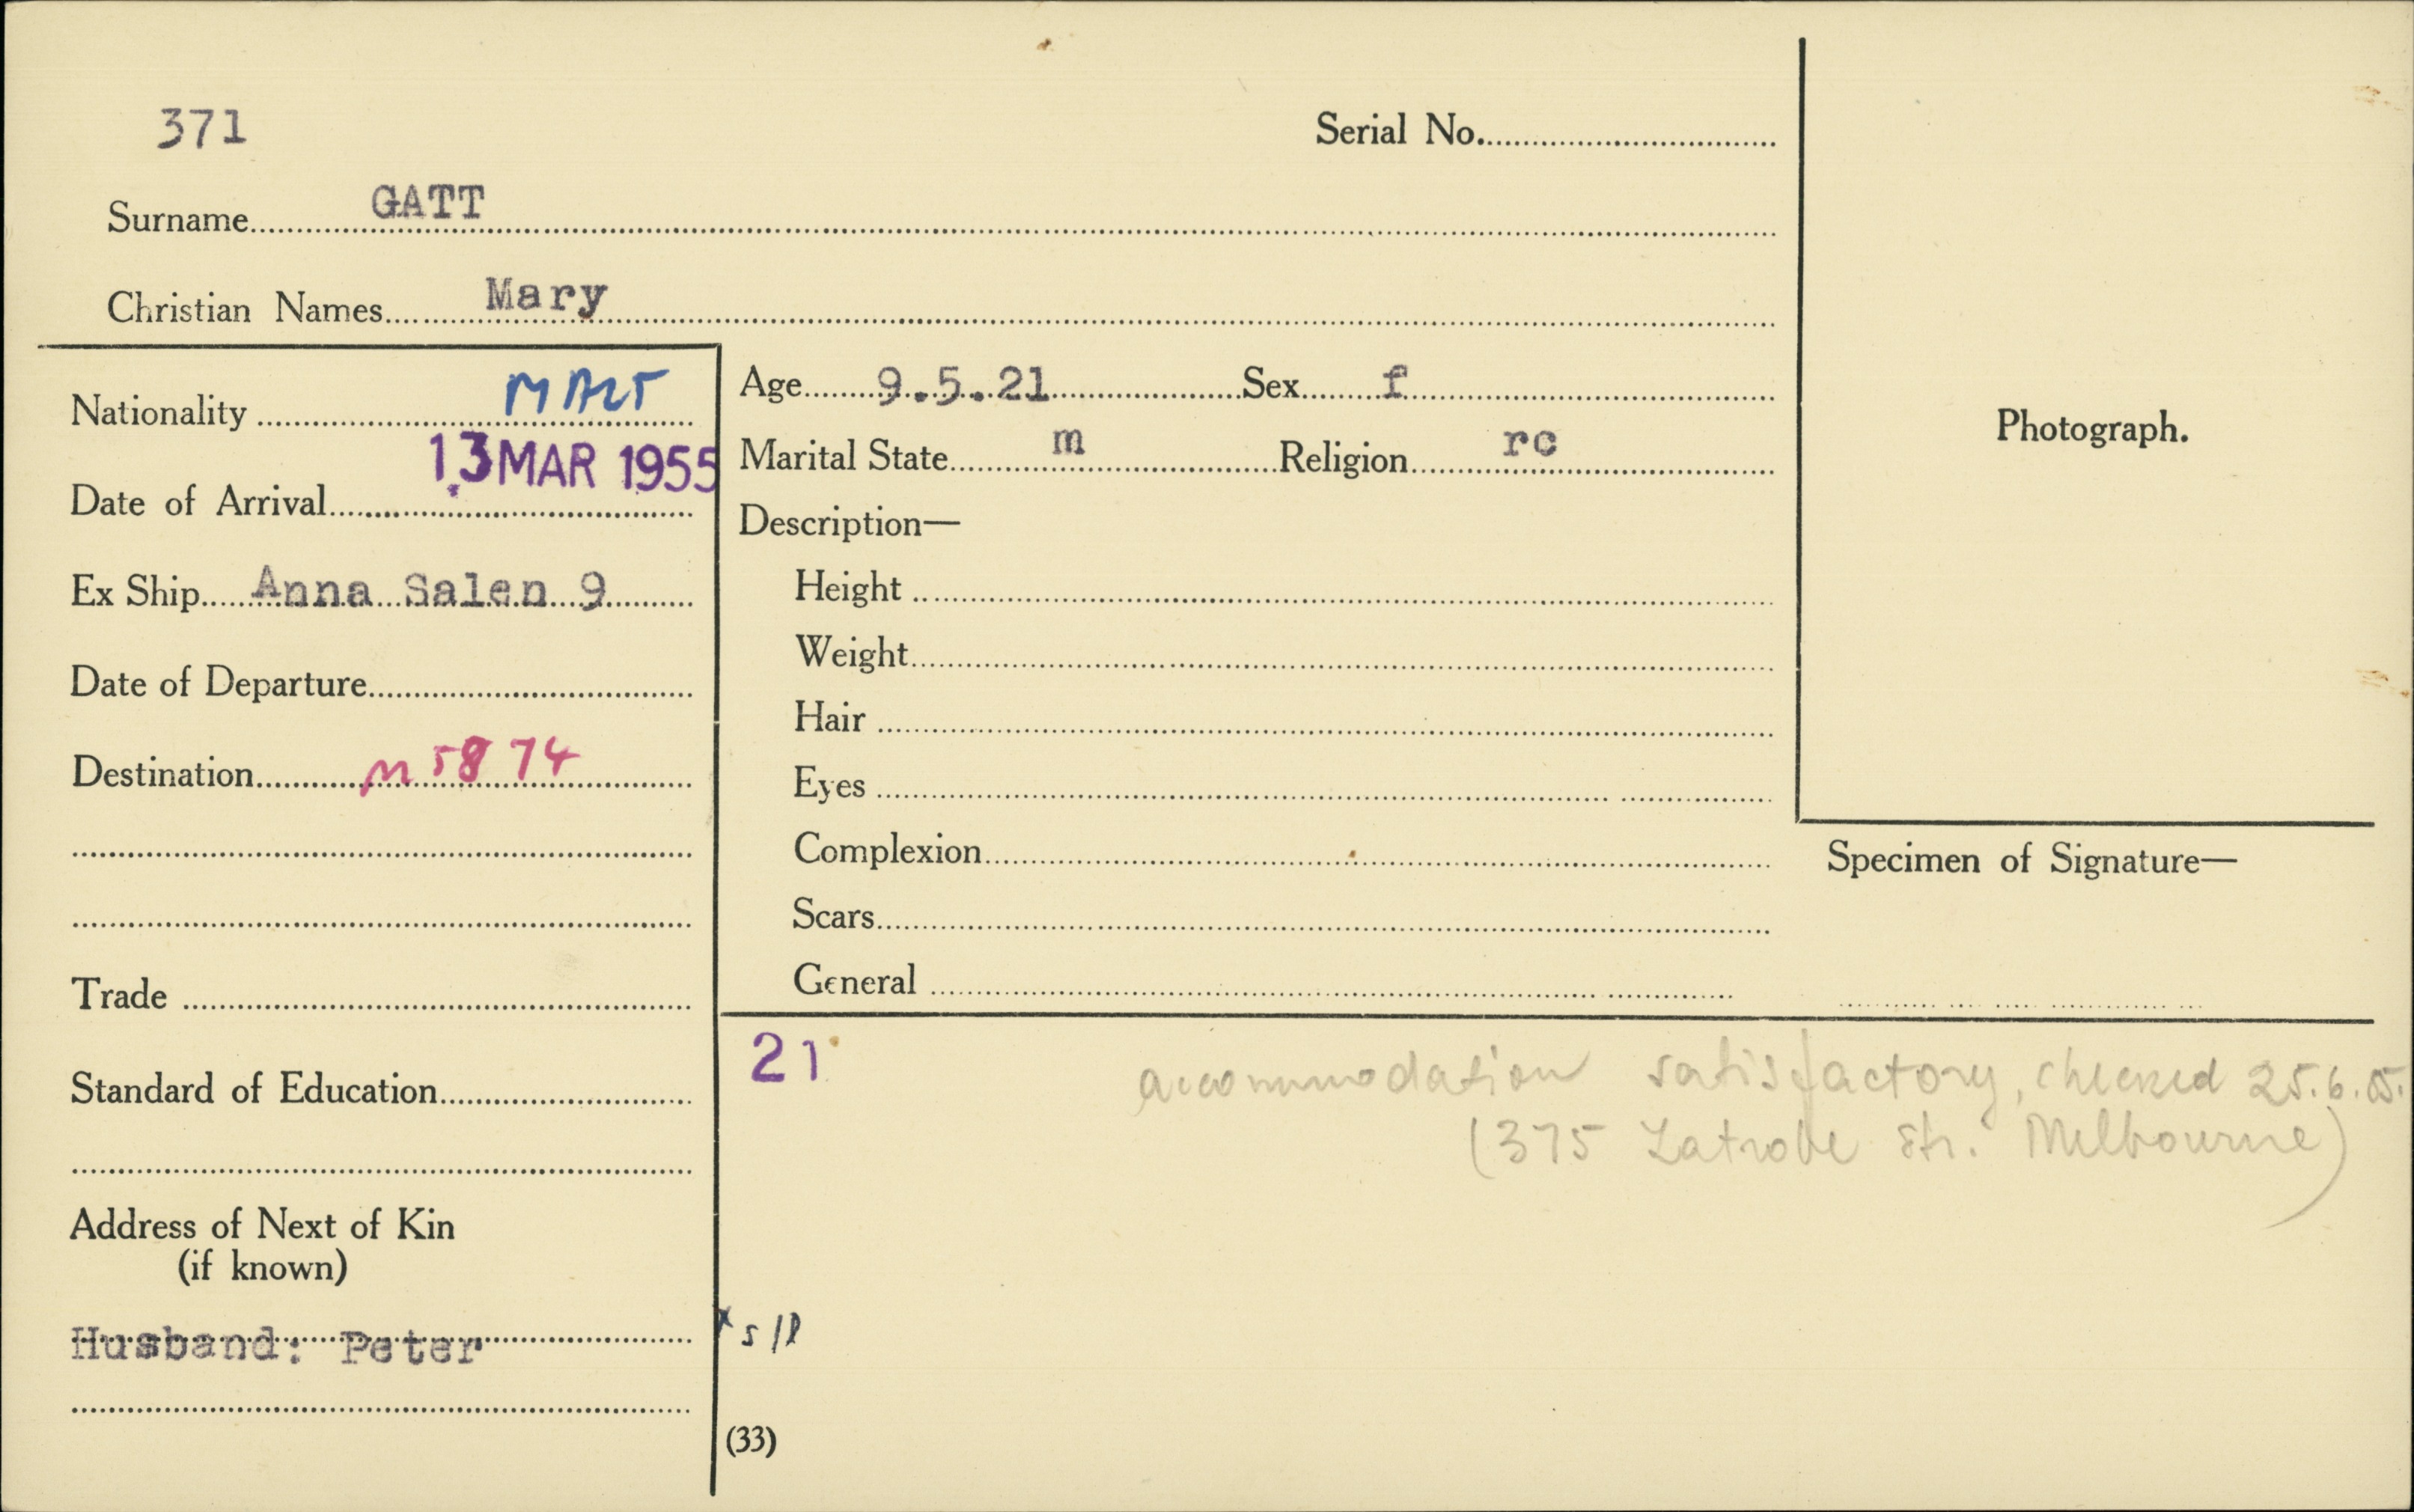 371
Serial No.
Surname GATT
Christian Names Mary
Nationality MALT
Date of Arrival 13 MAR 1955
Ex Ship Anna Salen 9
Date of Departure
Destination M 5874
Trade
Standard of Education
Address of Next of Kin
(if known)
Husband: Peter
Age 9.5.21 Sex f
Marital State m Religion rc
Description—
Height
Weight
Hair
Eyes
Complexion
Scars
General
Photograph.
Specimen of Signature—
21
accommodation satisfactory, checked 25.6.
(375 Latrobe Str. Melbourne)
(33)